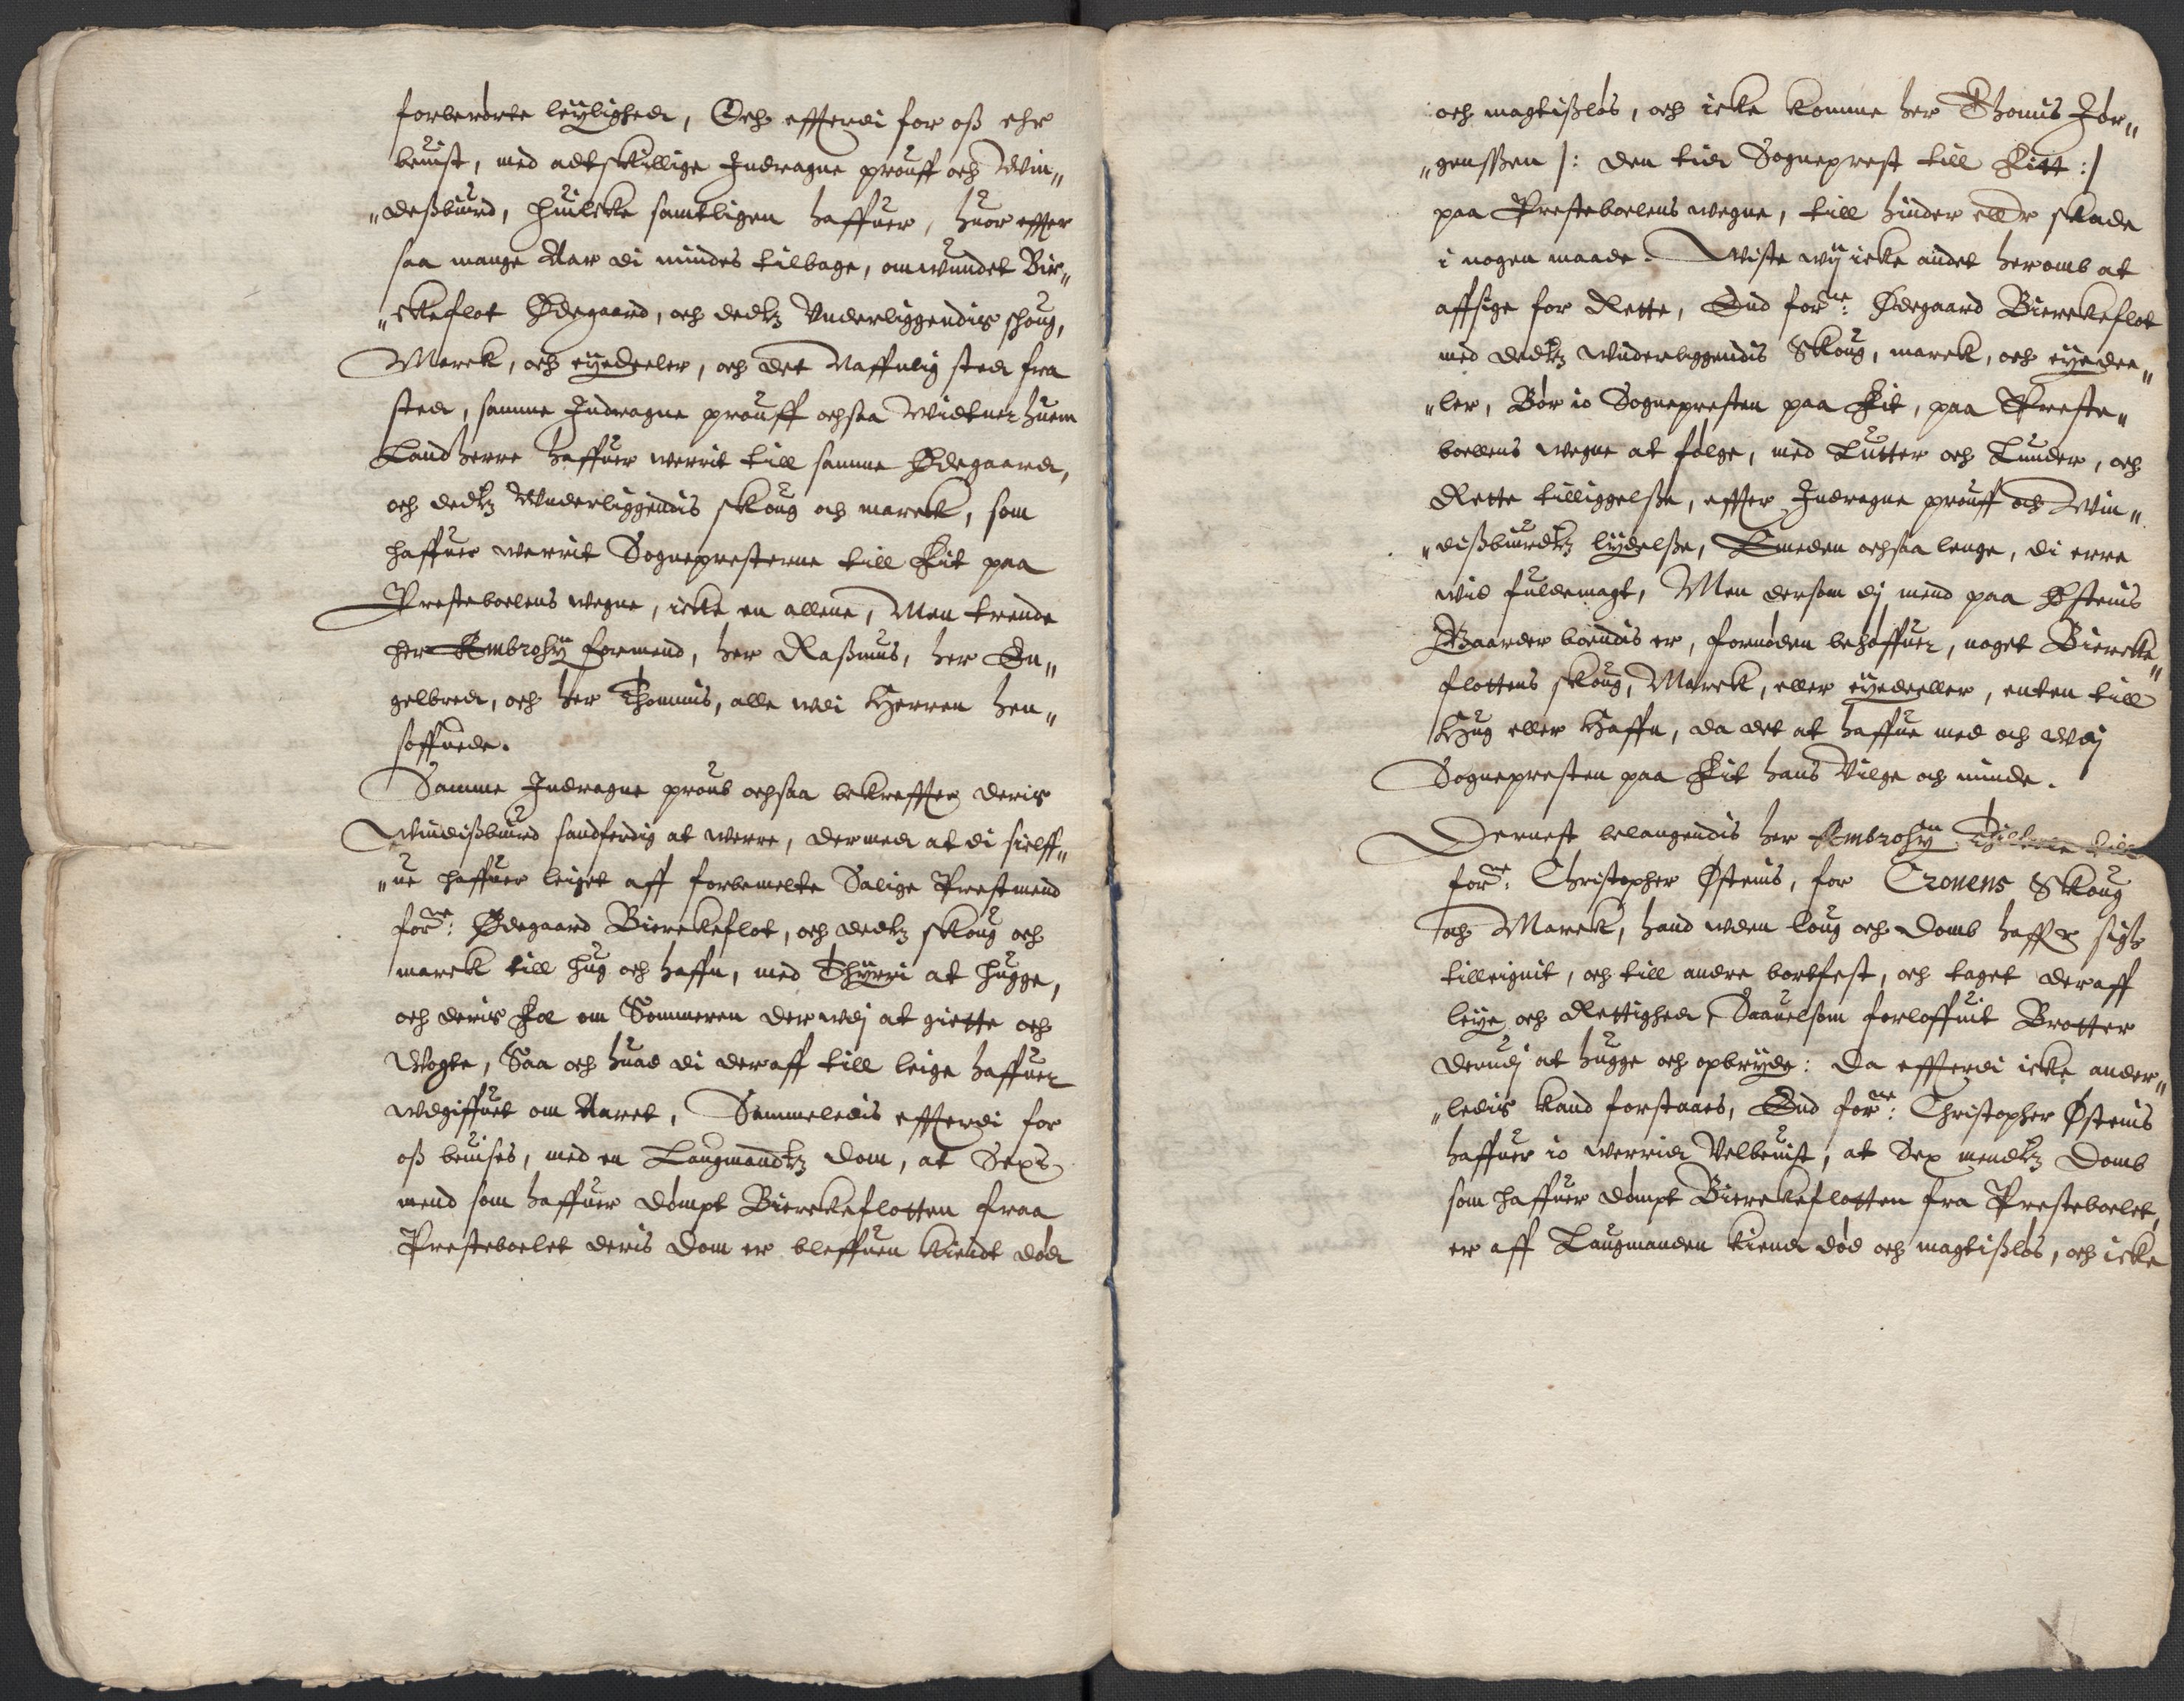 forberørte leÿlighed, Och effterdi for oß ehr
beuist, med adtskillige Indragne prouff och Win„
„deßbiurd, huilcke samtligen haffuer, huor effter
saa mange Aar di mindes tilbage, omwundet Bir„
„ckeflot Ødegaard, och dedtz Vnderliggendis schoug,
Marck, och eÿedeeler, och det Naffnlig sted fra
sted, samme Indragne prouff ochsaa Widtner huem
Landherre haffuer werrit till samme Ødegaard,
och dedtz Vnderliggendis skoug och marck, som
haffuer werrit Sognepresterne till Fit paa
Presteboelens wegne, icke en allene, Men trende
her Ambrosÿ formend, her Raßmus, her En„
gelbred, och her Thommis, alle wdi Herren hen„
soffuede.
Samme Indragne proub ochsaa bekreffter deris
Windißbiurd sandferdig at werre, dermed at di sielff„
„ue haffuer leiget aff forbemelte Salige Prestmend
forne: Ødegaard Bierckeflot, och dedtz skoug och
marck till hug och haffn, med Thÿrri at hugge,
och deris Fæ om Sommeren der wdj at giette och
Wogte, Saa och huad di deraff till leige haffuer
wdgiffuet om Aaret, Sammeledis effterdi for
oß beuises, med en Laugmandtz dom, at Sex
mend som haffuer dømpt Bierckeflotten fraa
Presteboelet deris dom er bleffuen kiendt død
och magtißløs, och icke komme her Thomis Jør„
„genssen /: den tid Sogneprest till Fitt :/
paa Presteboelens wegne, till hinder eller skade
i nogen maade. Wiste wÿ icke andet heromb at
affsige for Rette, End forne: Ødegaard Bierckeflot
med dedtz wnderliggendis Skoug, marck, och eÿedee„
„ler, Bør io Sognepresten paa Fit, paa Preste„
boelens wegne at følge, med Lutter och Lunder, och
Rette tilliggelße, effter Indragne prouff och Win„
„dißbiurdtz lÿdelße, Emeden ochsaa lenge, di erre
wid fuldemagt, Men dersom dj mend paa Østenis
Gaarder boendis er, fornøden behøffuer, noget Biercke„
flottens skoug, Marck, eller eÿedeeller, enten till
Hug eller Haffn, da det at haffue med och wdj
Sognepresten paa Fit hans Vilge och minde.
Dernest belangendis her Ambrosÿ Thiltale till
forne: Christopher Østenis, for Cronens Skoug
och Marck, hand wden loug och domb haffr sigh
tilleignit, och till andre bortfest, och taget deraff
leÿe och Rettighed, Saauelsom forloffuit Brotter
derudj at hugge och opbrÿde: da effterdi icke ander„
„ledis kand forstaaes, End forne: Christopher Østenis
haffuer io werrid Velbeuist, at Sex mendtz Domb
som haffuer dømpt Bierckeflotten fra Presteboelet,
er aff Laugmanden kiend død och magtißløs, och icke